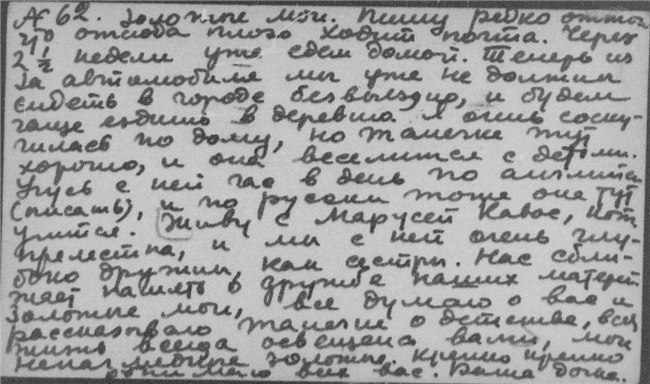 № 62. Золотые мои. Пишу редко оттого
что отсюда плохо ходит почта. Через
2 1/2 недели уже едем домой. Теперь из
за автомобиля мы уже не должны
сидеть в городе безвыездно, и будем
чаще ездить в деревню. Я очень соску-
чилась по дому, но Танечке тут
хорошо, и она веселится с детьми.
Учусь с ней час в день по английски
(писать), и по русски тоже она тут
учится. Живу с Марусей Кавос, кот.
прелестна, и мы с ней очень глу-
боко дружны, как сестры. Нас сбли-
жает память о дружбе наших матерей.
Золотые мои, все думаю о вас и
рассказываю Танечке о детстве, вся
жизнь всегда освещена вами, мои
ненаглядные золотые. Крепко крепко
обнимаю всех вас. Ваша дочка.